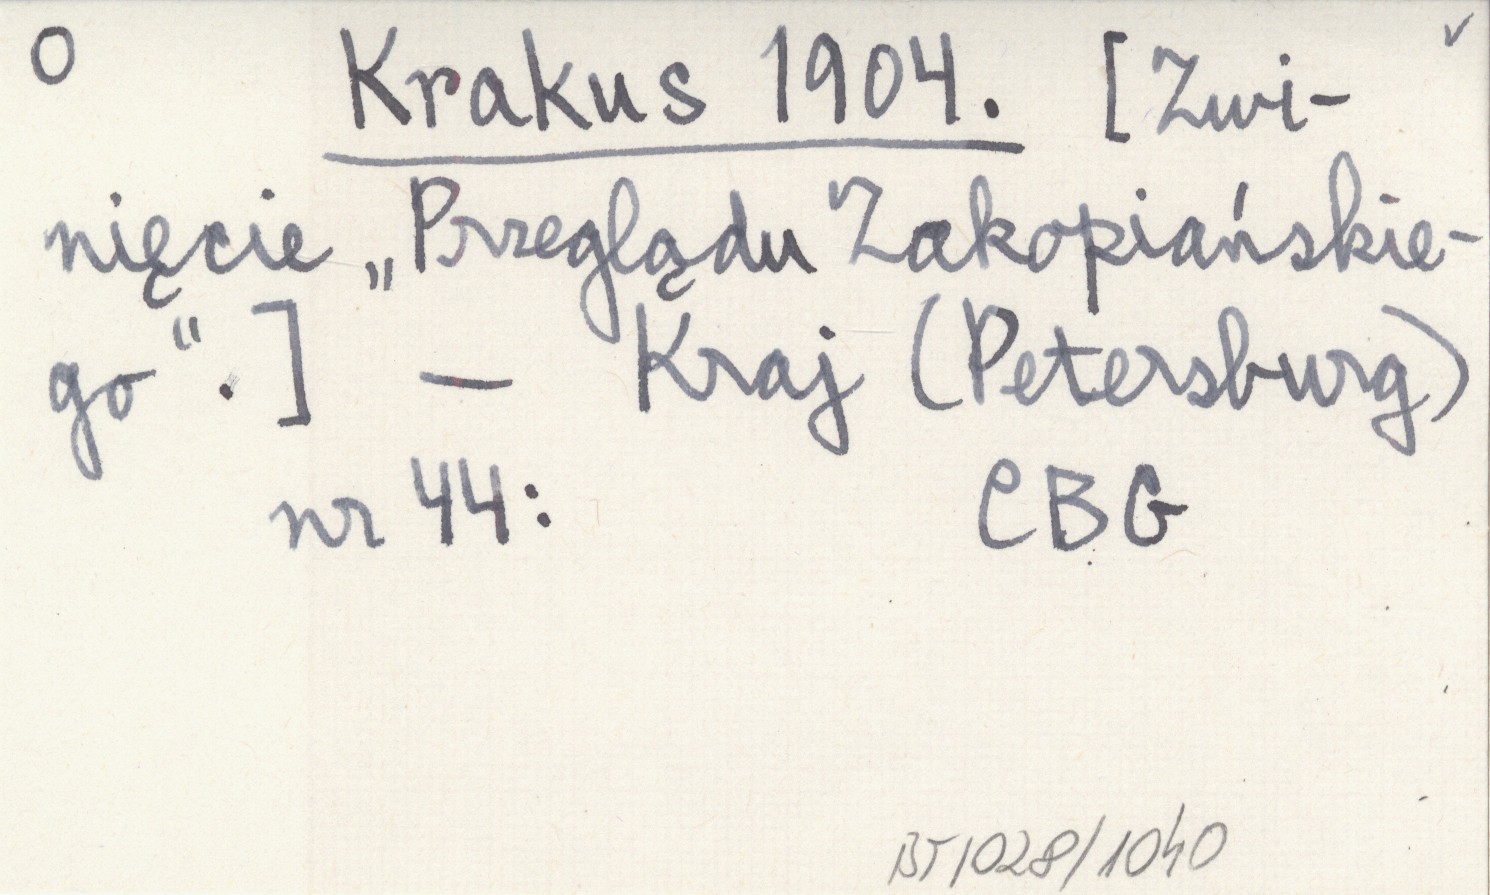 O Krakus 1904. [Zwi-
nięcie „Przeglądu Zakopiańskie-
go“.] — Kraj (Petersburg)
nr 44: CBG
BT1028/1040